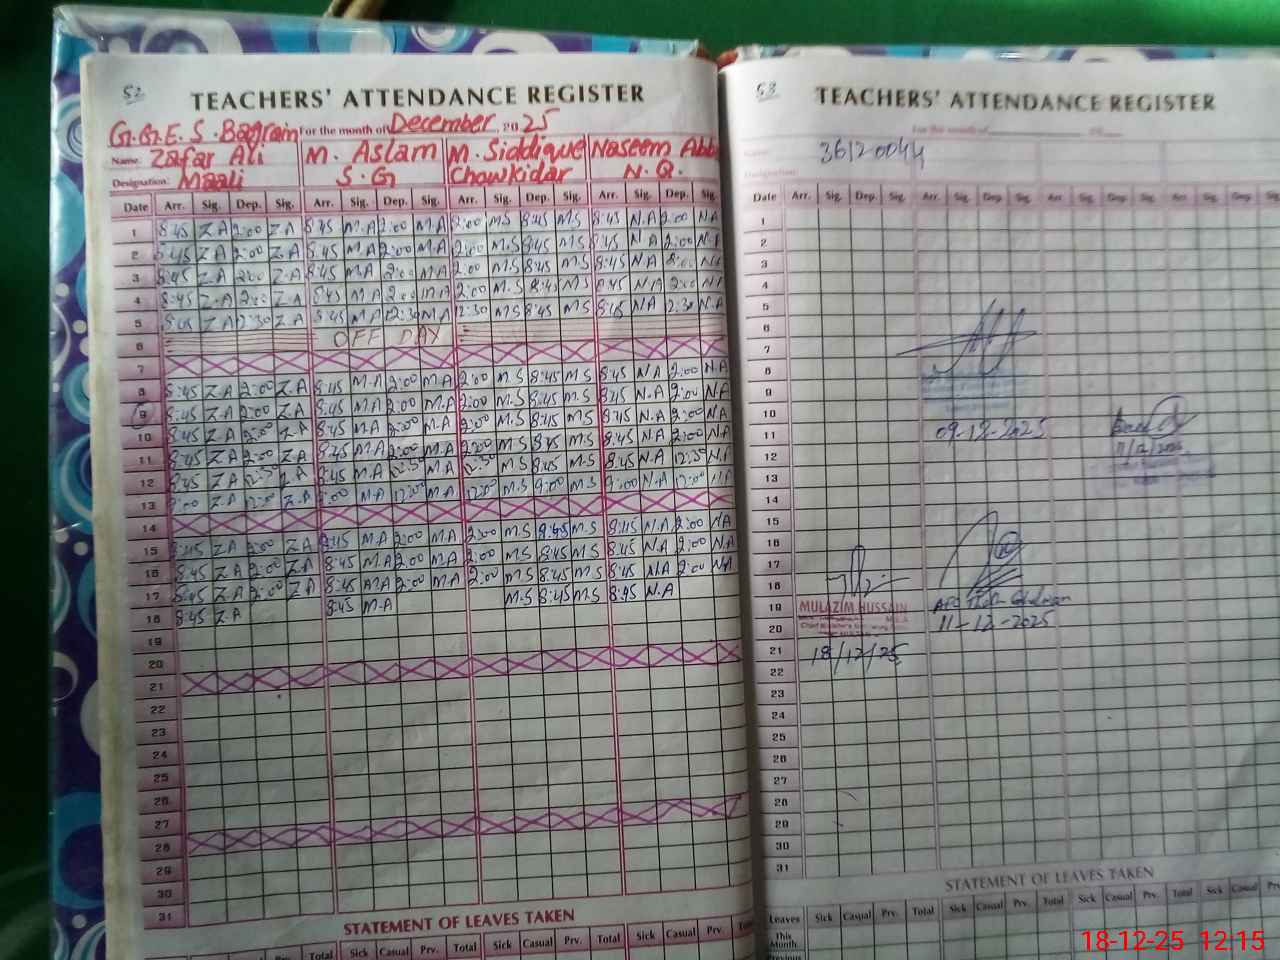 52
TEACHERS' ATTENDANCE REGISTER
G.G.E.S. Bagrain For the month of December, 2025
Name: Zafar Ali M. Aslam M. Siddique Naseem
Designation: Maali S.G Chowkidar N.Q.
Date Arr. Sig. Dep. Sig. Arr. Sig. Dep. Sig. Arr. Sig. Dep. Sig. Arr. Sig. Dep. Sig.
1 8:45 Z.A 2:00 Z.A 8:45 M.A 2:00 M.A 2:00 M.S 8:45 M.S 8:45 N.A 2:00 N.A
2 8:45 Z.A 2:00 Z.A 8:45 M.A 2:00 M.A 2:00 M.S 8:45 M.S 8:45 N.A 2:00 N.A
3 8:45 Z.A 2:00 Z.A 8:45 M.A 2:00 M.A 2:00 M.S 8:45 M.S 8:45 N.A 2:00 N.A
4 8:45 Z.A 2:00 Z.A 8:45 M.A 2:00 M.A 2:00 M.S 8:45 M.S 8:45 N.A 2:00 N.A
5 Z.A 12:30 Z.A 8:45 M.A 12:30 M.A 12:30 M.S 8:45 M.S 8:45 N.A 12:30 N.A
6 OFF DAY
7
8 8:45 Z.A 2:00 Z.A 8:45 M.A 2:00 M.A 2:00 M.S 8:45 M.S 8:45 N.A 2:00 N.A
9 8:45 Z.A 2:00 Z.A 8:45 M.A 2:00 M.A 2:00 M.S 8:45 M.S 8:45 N.A 2:00 N.A
10 8:45 Z.A 2:00 Z.A 8:45 M.A 2:00 M.A 2:00 M.S 8:45 M.S 8:45 N.A 2:00 N.A
11 8:45 Z.A 2:00 Z.A 8:45 M.A 2:00 M.A 2:00 M.S 8:45 M.S 8:45 N.A 2:00 N.A
12 8:45 Z.A 12:30 Z.A 8:45 M.A 12:30 M.A 12:30 M.S 8:45 M.S 8:45 N.A 12:30 N.A
13 9:00 Z.A 12:00 Z.A 9:00 M.A 12:00 M.A 12:00 M.S 9:00 M.S 9:00 N.A 12:00 N.A
14
15 8:45 Z.A 2:00 Z.A 8:45 M.A 2:00 M.A 2:00 M.S 8:45 M.S 8:45 N.A 2:00 N.A
16 8:45 Z.A 2:00 Z.A 8:45 M.A 2:00 M.A 2:00 M.S 8:45 M.S 8:45 N.A 2:00 N.A
17 8:45 Z.A 2:00 Z.A 8:45 M.A 2:00 M.A 2:00 M.S 8:45 M.S 8:45 N.A 2:00 N.A
18 8:45 Z.A 8:45 M.A M.S 8:45 M.S 8:45 N.A
19
20
21
22
23
24
25
26
27
28
29
30
31
STATEMENT OF LEAVES TAKEN
Sick Casual Prv. Total Sick Casual Prv. Total Sick Casual Prv.
53
TEACHERS' ATTENDANCE REGISTER
For the month of
36120044
Date Arr. Sig. Dep. Sig. Arr. Sig. Dep. Sig. Arr. Sig. Dep. Sig. Arr. Sig. Dep. Sig.
1
2
3
4
5
6
7
8
9
10
11 09-12-2025
12
13
14
15
16
17
18
19 MULAZIM HUSSAIN
20 11-12-2025
21 18/12/25
22
23
24
25
26
27
28
29
30
31
STATEMENT OF LEAVES TAKEN
Leaves Sick Casual Prv. Total Sick Casual Prv. Total Sick Casual Prv. Total Sick Casual Prv.
This Month
Previous
18-12-25 12:15